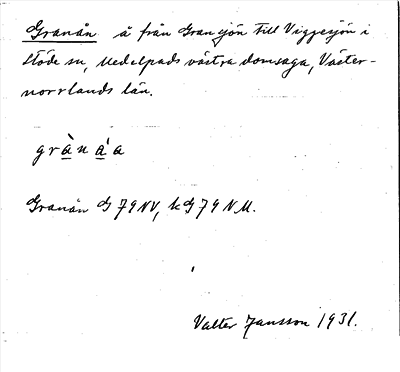 Granån å från Gransjön till Viggesjön i
Stöde sn, Medelpads västra domsaga, Väster-
norrlands län.
grànáa
Granån G 79 NV, kG 79 NM.
Valter Jansson 1931.